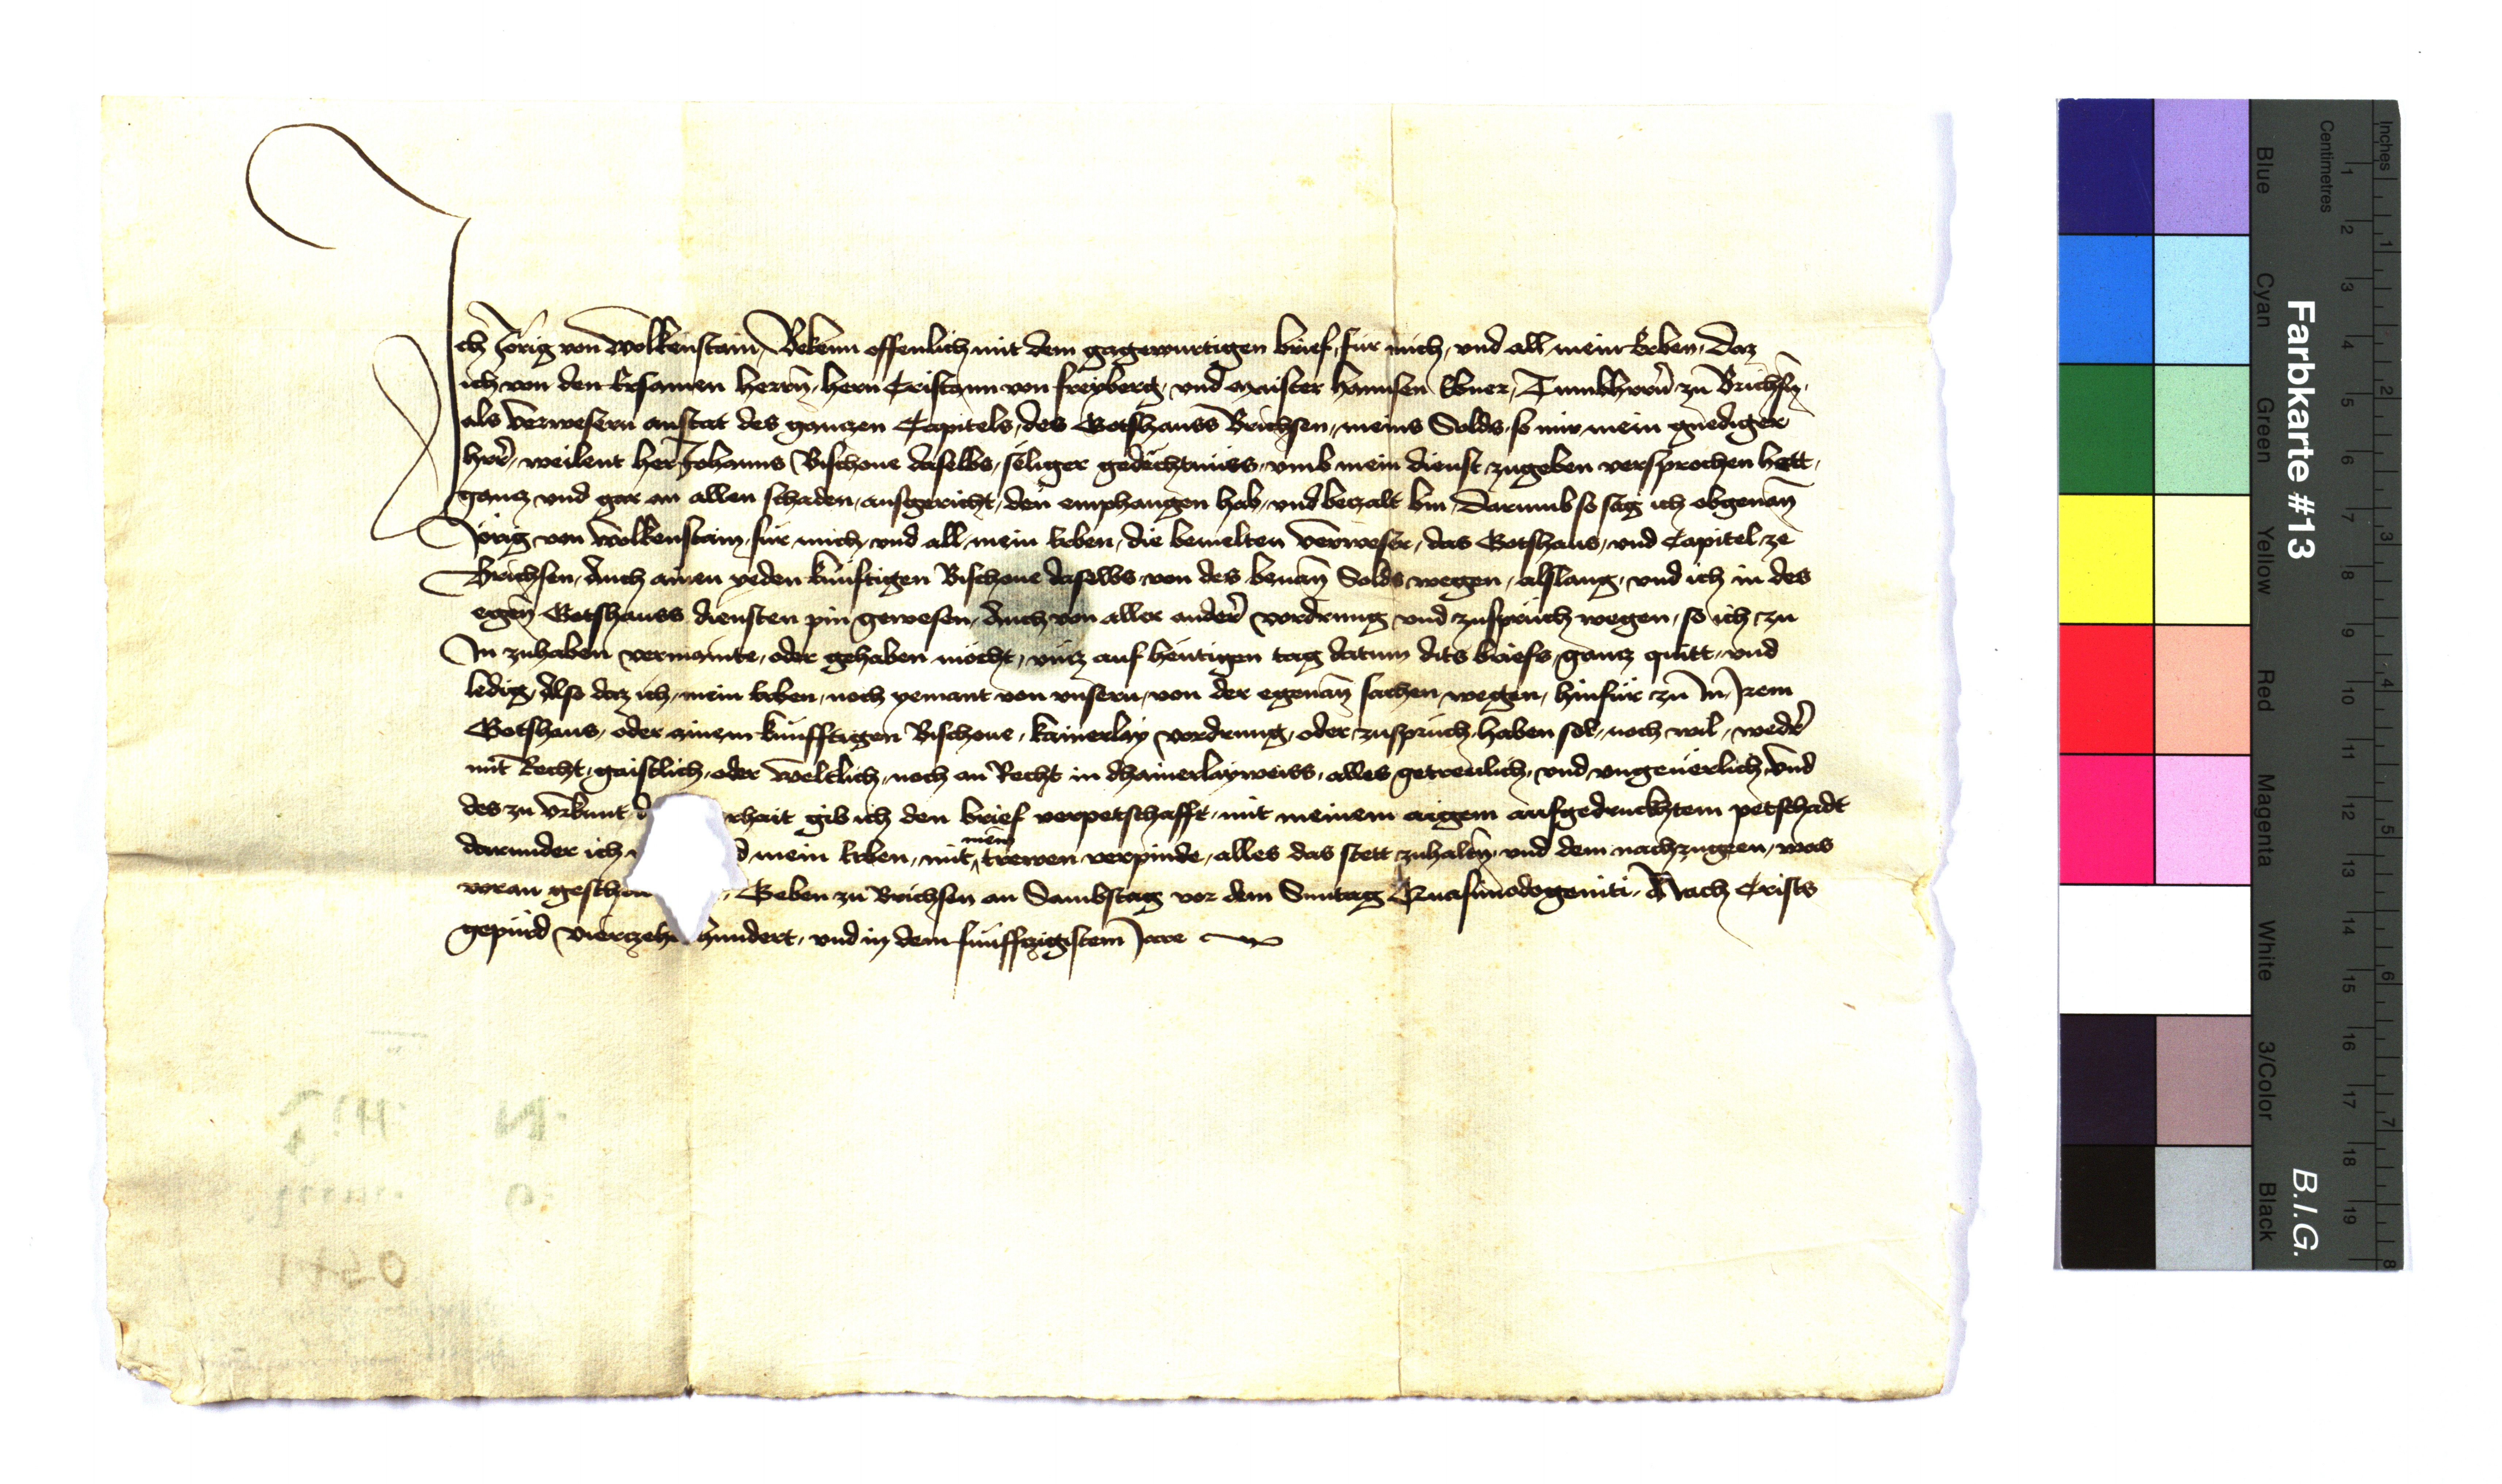 Ich Jörig von Wolkenstain, Bekenn offenlich mit dem gagewurtigen brief, fur mich, vnd all mein Erben, daz
ich von den Ersamen herrn, hern Cristann von freyberg, vnd Maister Hannsen Ebner, Tumbhrrn zu Brichsen,
als Verwesern anstat des ganczen Capitels, des Gotshauss Brichsen, meins Solds, so mir mein gnediger
herr, weilent her Johanns Bischoue daselbs, seliger gedechtnüss, vmb mein dienst, zugeben versprochen hett,
gancz vnd gar an allen schaden, ausgericht, den emphangen hab, vnd beczalt bin, Darumb so sag ich obgenan
Jörig von Wolkenstain, für mich, vnd all mein Erben, die bemelten Verweser, das Gotshaus, vnd Capitel ze
Brichsen, Auch ainen yeden künftigen Bischoue daselbs, von des benan Solds wegen, alslang, vnd ich in des
egen Gotshauss diensten pin gewesen, Auch von aller ander vordrung vnd zuspruch wegen, so ich zu
In zuhaben vermainte, oder gehaben möcht, vncz auf heutigen tag datum dits briefs, gancz quitt, vnd
ledig, Also daz ich, mein Erben, noch yemant von vnsern, von der egenan sachen wegen, hinfür zu In, Irem
Gotshaus, oder ainem künfftigen Bischoue, kainerlay vordrung, oder zuspruch, haben sol, noch wil, weder
mit Recht, gaistlich, oder weltlich, noch an Recht in dhainerlayweiss, alles getreulich, vnd vngeuerlich, Vnd
des zu vrkunt d rhait gib ich den brief verpetschafft, mit meinem aigem aufgedruckhtem petschadt
darunder ich d mein Erben, mit mein trewen verpinde, alles das stett zuhalten, vnd dem nachzugeen, was
voran gesch , Geben zu Brichsen an Sambstag vor dem Suntag Quasimodogeniti, Nach Crists
gepürd Vierczeh hundert, vnd in dem fünffczigistem Jare
Farbkarte #13
B.I.G.
Inches
Centimetres
1 2 3 4 5 6 7 8 9 10 11 12 13 14 15 16 17 18 19
1 2 3 4 5 6 7 8
Blue
Cyan
Green
Yellow
Red
Magenta
White
3/Color
Black